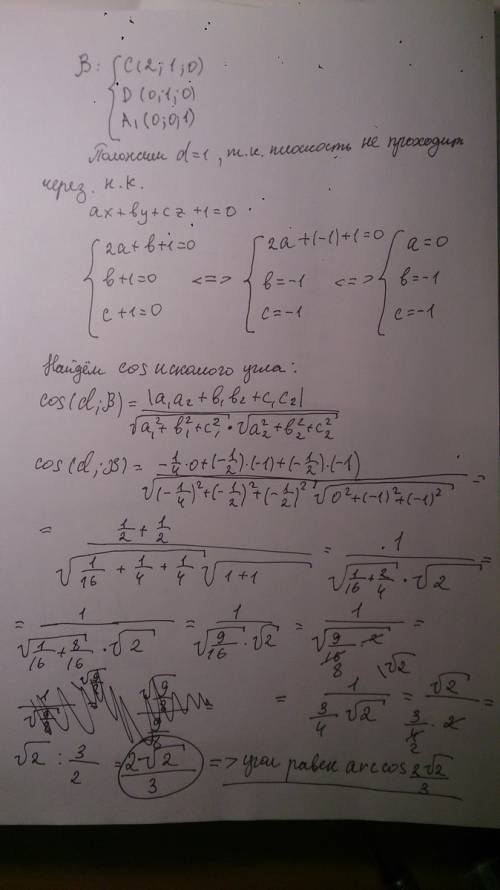 β: { C(2;1;0)
D(0;1;0)
A₁(0;0;1)
Положим d=1, т.к. плоскость не проходит
через н.к.
ax+by+cz+1=0.
{ 2a+b+1=0 { 2a+(-1)+1=0 { a=0
b+1=0 <=> b=-1 <=> b=-1
c+1=0 c=-1 c=-1
Найдём cos искомого угла:
cos(α;β) = |a₁a₂+b₁b₂+c₁c₂| / (√(a₁²+b₁²+c₁²)·√(a₂²+b₂²+c₂²))
cos(α;β) = (-1/4·0+(-1/2)·(-1)+(-1/2)·(-1)) / (√((-1/4)²+(-1/2)²+(-1/2)²) √(0²+(-1)²+(-1)²)) =
= (1/2+1/2) / (√(1/16+1/4+1/4) √(1+1)) = 1 / (√(1/16+2/4)·√2) =
= 1 / (√(1/16+8/16)·√2) = 1 / (√(9/16)·√2) = 1 / √(9/16·2) =
= 1 / (3/4 √2) = √2 / (3/4·2) =
√2 : 3/2 = 2√2/3 => угол равен arccos 2√2/3